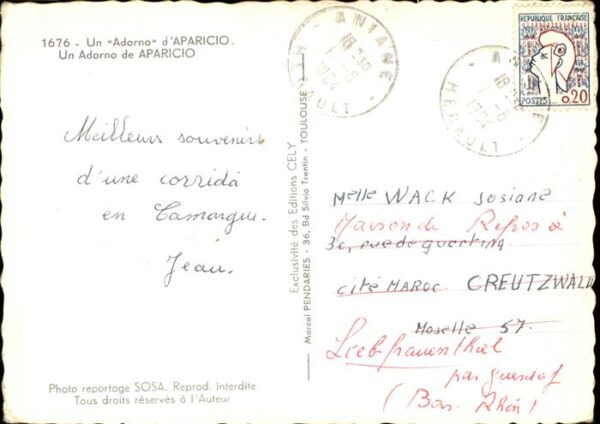 1676 - Un "Adorno" d'APARICIO.
Un Adorno de APARICIO
Meilleurs souvenirs
d'une corrida
en Camargue.
Jean.
Photo reportage SOSA. Reprod. interdite
Tous droits réservés à l'Auteur
Exclusivité des Editions CELY
Marcel PENDARIES - 36, Bd Silvio Trentin - TOULOUSE
ANIANE
18 30
1964
HERAULT
ANIANE
18 30
1964
HERAULT
REPUBLIQUE FRANÇAISE
POSTES 0,20
Melle WACK Josiane
Maison de Repos à
3c, rue de
cité MAROC. CREUTZWALD
Moselle 57.
Liebfrauenthal
par
(Bas. Rhin)